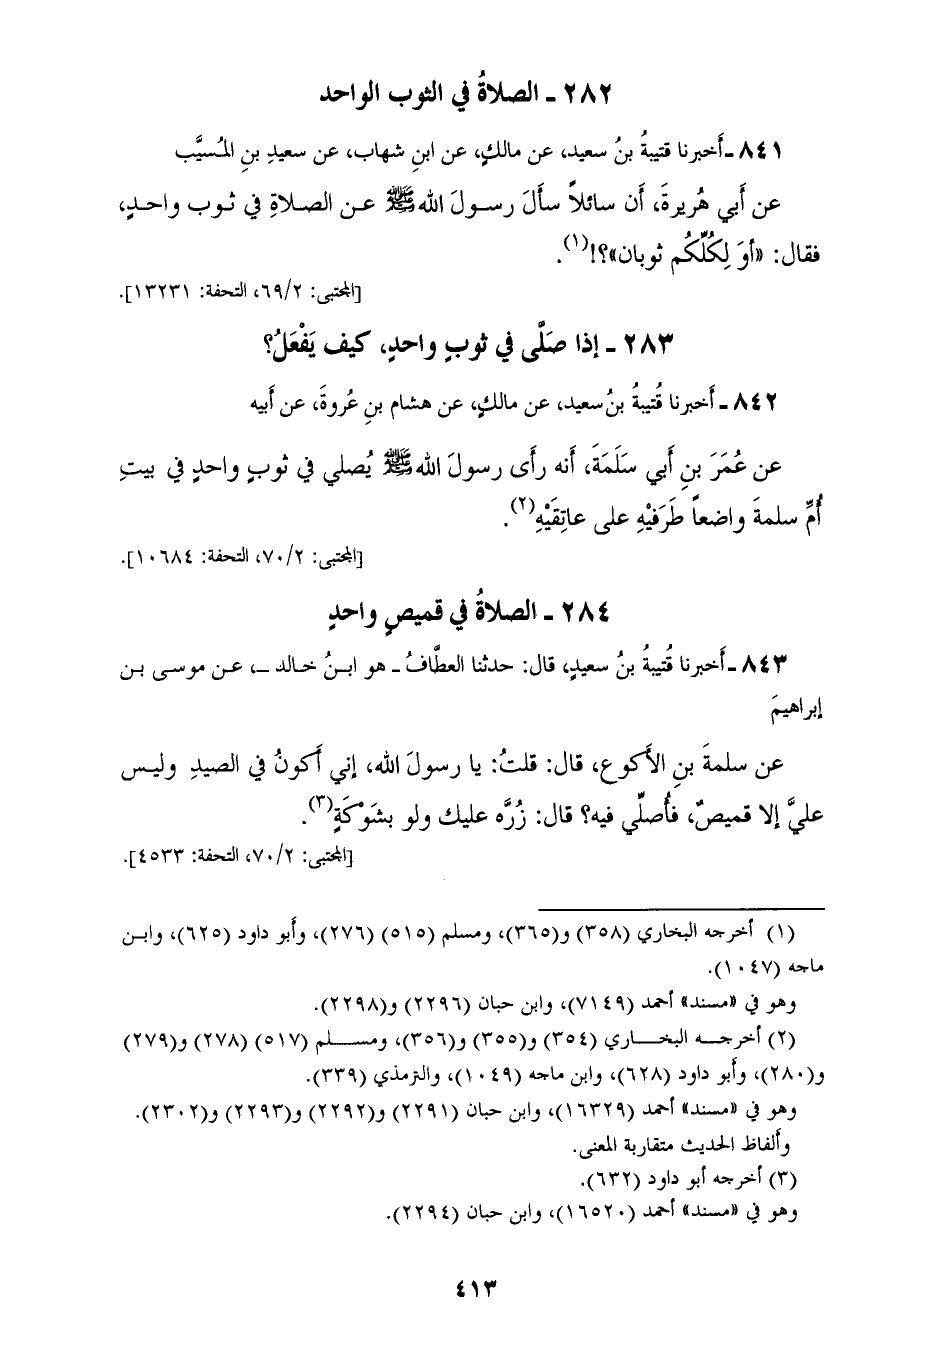 ٢٨٢ ـ الصلاةُ في الثوب الواحد
٨٤١ ـ أَخبرنا قتيبةُ بنُ سعيد، عن مالكٍ، عن ابنِ شهاب، عن سعيدِ بنِ المُسيَّب
عن أَبي هُريرةَ، أن سائلاً سأَلَ رسولَ اللهﷺ عن الصلاةِ في ثوب واحدٍ،
فقال: «أوَ لِكُلِّكُم ثوبان»؟!(١).
[المجتبى: ٦٩/٢، التحفة: ١٣٢٣١].
٢٨٣ ـ إذا صَلَّى في ثوبٍ واحدٍ، كيف يَفْعَلُ؟
٨٤٢ ـ أَخبرنا قُتيبةُ بنُ سعيد، عن مالكٍ، عن هشام بنِ عُروةَ، عن أَبيه
عن عُمَرَ بنِ أَبي سَلَمَةَ، أنه رأَى رسولَ اللهﷺ يُصلي في ثوبٍ واحدٍ في بيتِ
أُمِّ سلمةَ واضعاً طَرَفيْهِ على عاتِقَيْهِ(٢).
[المجتبى: ٧٠/٢، التحفة: ١٠٦٨٤].
٢٨٤ ـ الصلاةُ في قميصٍ واحدٍ
٨٤٣ ـ أَخبرنا قُتيبةُ بنُ سعيدٍ، قال: حدثنا العطَّافُ ـ هو ابنُ خالد ـ، عن موسى بن
إبراهيمَ
عن سلمةَ بنِ الأَكوع، قال: قلتُ: يا رسولَ الله، إني أَكونُ في الصيدِ وليس
عليَّ إلا قميصٌ، فأُصلِّي فيه؟ قال: زُرَّه عليك ولو بشَوْكَةٍ(٣).
[المجتبى: ٧٠/٢، التحفة: ٤٥٣٣].
(١) أخرجه البخاري (٣٥٨) و(٣٦٥)، ومسلم (٥١٥) (٢٧٦)، وأَبو داود (٦٢٥)، وابن
ماجه (١٠٤٧).
وهو في «مسند» أحمد (٧١٤٩)، وابن حبان (٢٢٩٦) و(٢٢٩٨).
(٢) أخرجه البخاري (٣٥٤) و(٣٥٥) و(٣٥٦)، ومسلم (٥١٧) (٢٧٨) و(٢٧٩)
و(٢٨٠)، وأَبو داود (٦٢٨)، وابن ماجه (١٠٤٩)، والترمذي (٣٣٩).
وهو في «مسند» أحمد (١٦٣٢٩)، وابن حبان (٢٢٩١) و(٢٢٩٢) و(٢٢٩٣) و(٢٣٠٢).
وأَلفاظ الحديث متقاربة المعنى.
(٣) أخرجه أبو داود (٦٣٢).
وهو في «مسند» أحمد (١٦٥٢٠)، وابن حبان (٢٢٩٤).
٤١٣